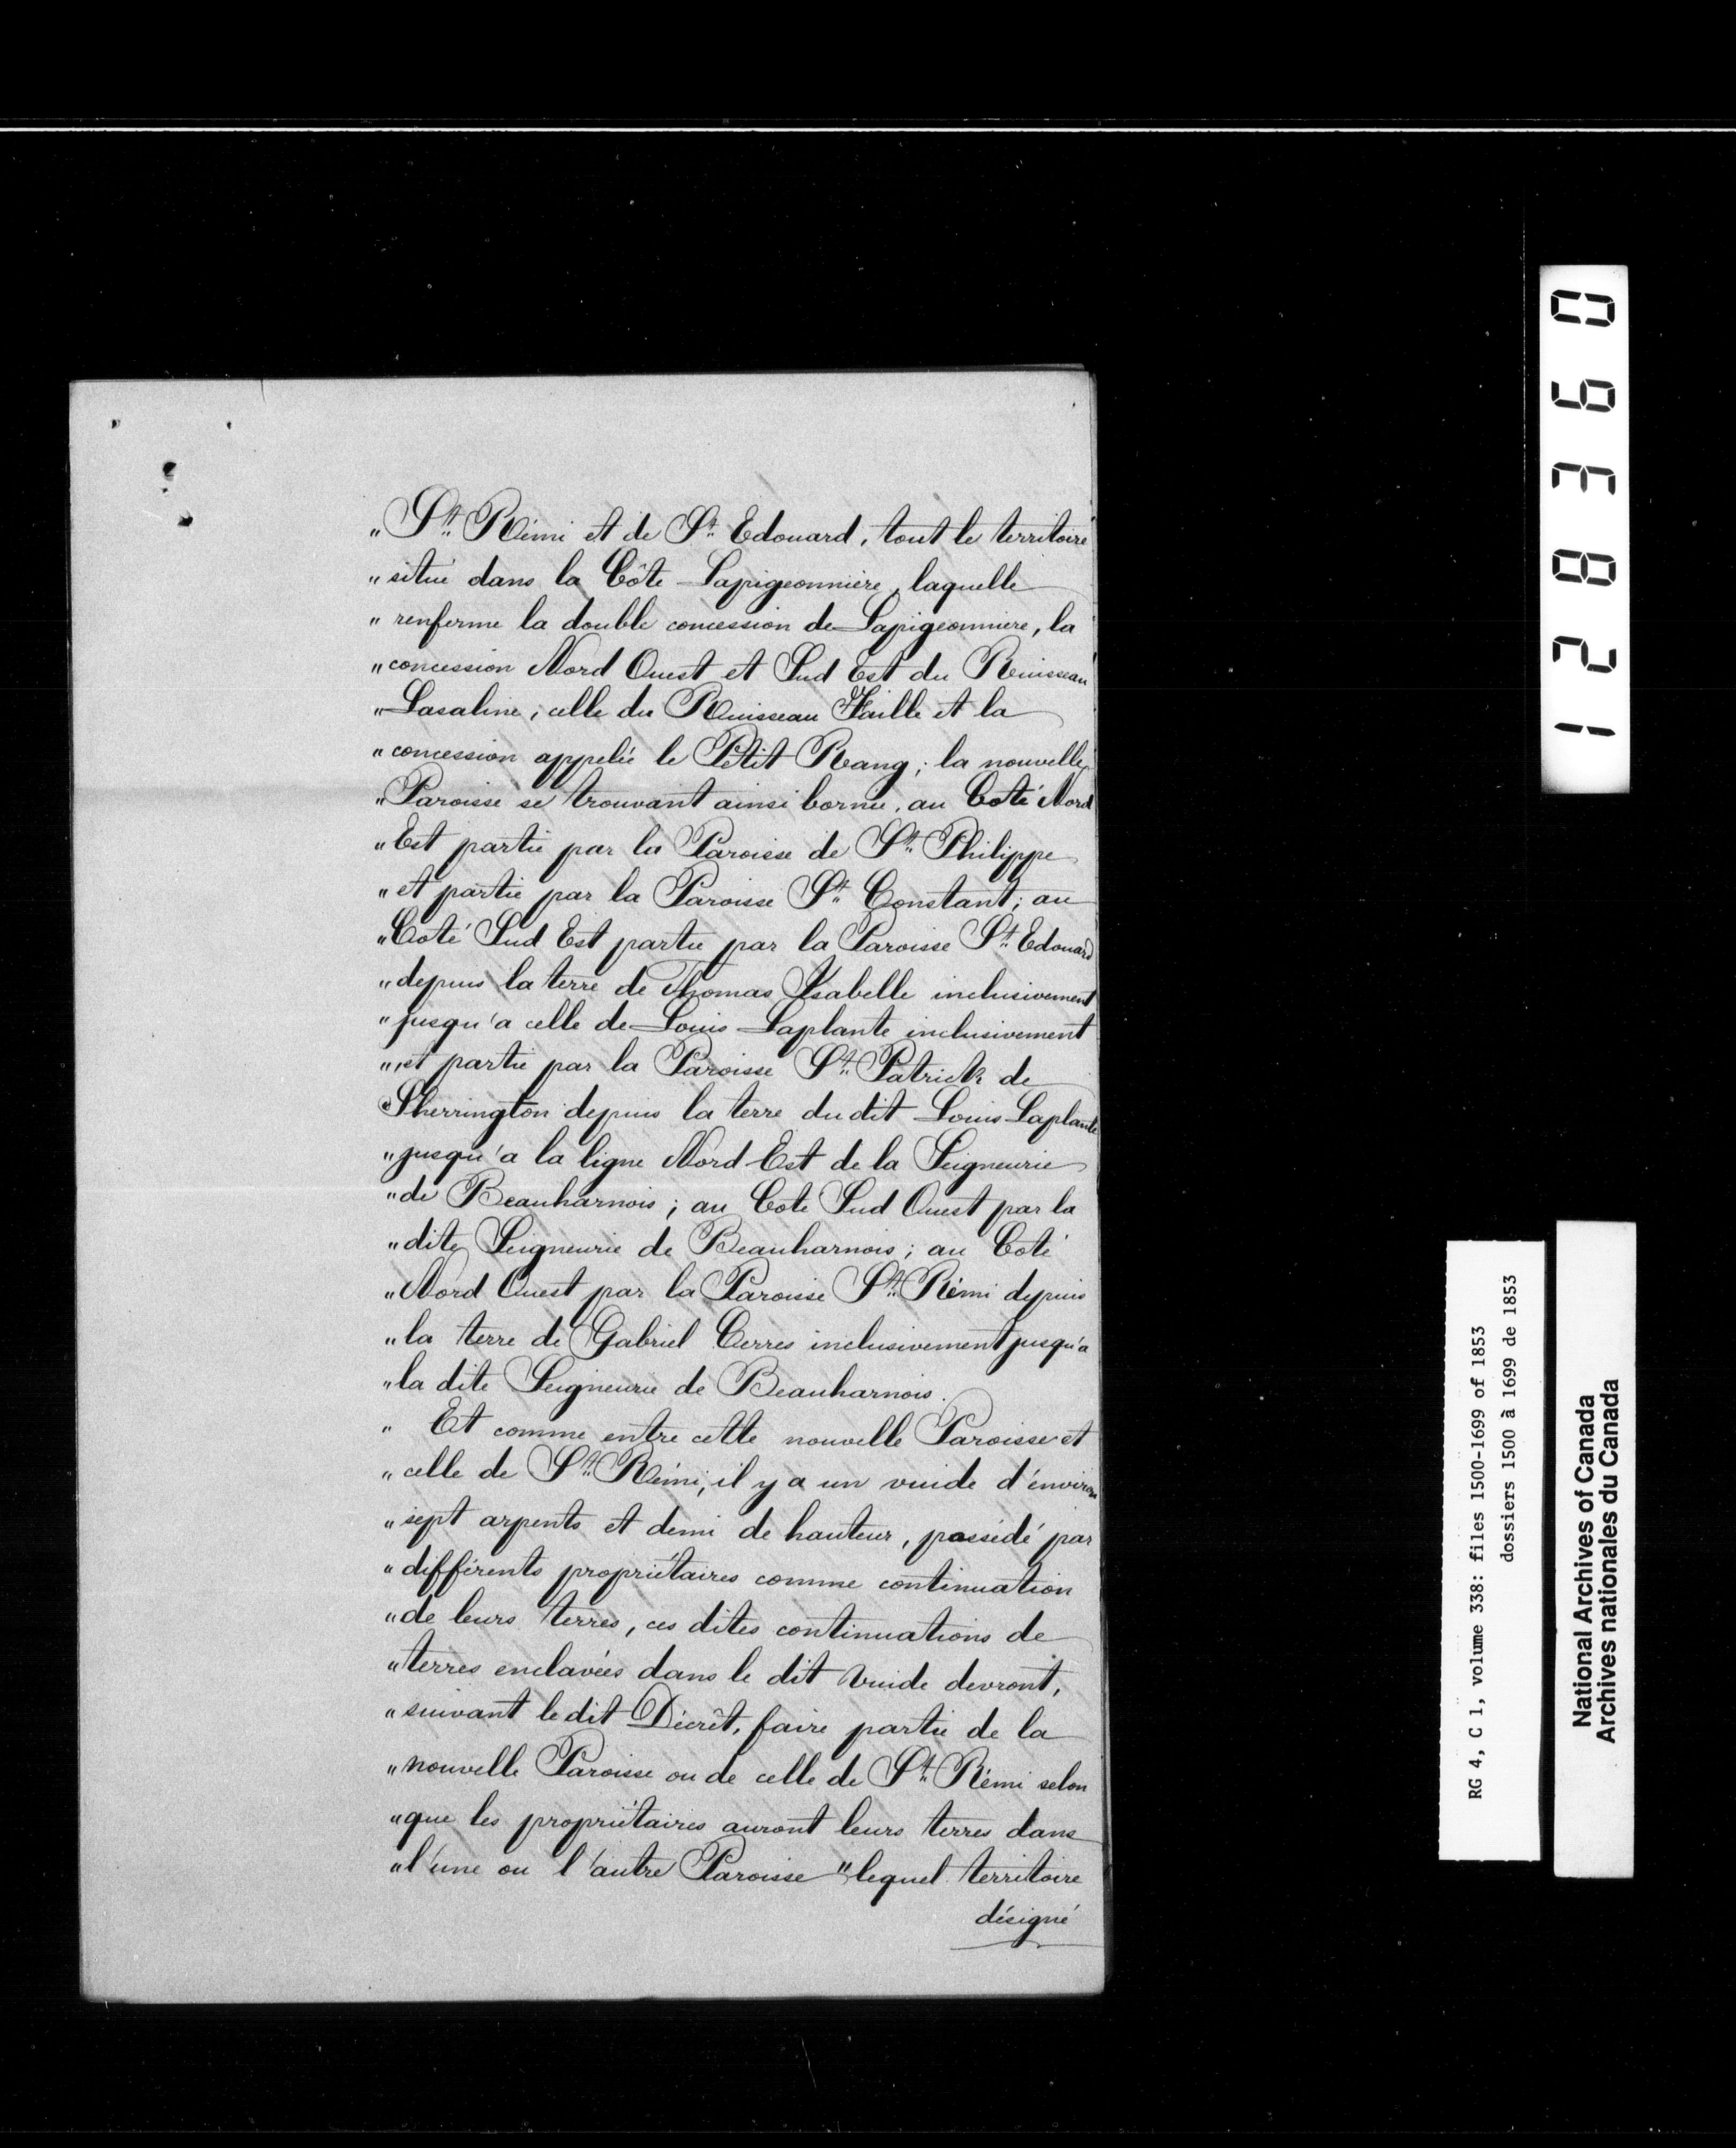 „ St. Rémi et de St. Edouard, tout le territoire
„ situé dans la Côte Lapigeonnière, laquelle
„ renferme la double concession de Lapigeonniere, la
„ concession Nord Ouest et Sud Est du Ruisseau
„ Lasaline, celle du Ruisseau Haille et la
„ concession appelée le Petit Rang; la nouvelle
„ Paroisse se trouvant ainsi bornée, au Coté Nord
„ Est partie par la Paroisse de St. Philippe
„ et partie par la Paroisse St. Constant; au
„ Coté Sud Est partie par la Paroisse St. Edouard
„ depuis la terre de Thomas Ysabelle inclusivement
„ jusqu'a celle de Louis Laplante inclusivement
„ et partie par la Paroisse St. Patrick de
„ Sherrington depuis la terre du dit Louis Laplante
„ jusqu'a la ligne Nord Est de la Seigneurie
„ de Beauharnois; au Cote Sud Ouest par la
„ dite Seigneurie de Beauharnois; au Coté
„ Nord Ouest par la Paroisse St. Rémi depuis
„ la terre de Gabriel Cerres inclusivement jusqu'a
„ la dite Seigneurie de Beauharnois.
„ Et comme entre cette nouvelle Paroisse et
„ celle de St. Rémi, il y a un vuide d'environ
„ sept arpents et demi de hauteur, possédé par
„ différents propriétaires comme continuation
„ de leurs terres, ces dites continuations de
„ terres enclavées dans le dit vuide devront,
„ suivant le dit Décrêt, faire partie de la
„ nouvelle Paroisse ou de celle de St. Rémi selon
„ que les propriétaires auront leurs terres dans
„ l'une ou l'autre Paroisse" lequel territoire
désigné
128360
RG 4, C 1, volume 338: files 1500-1699 of 1853
dossiers 1500 à 1699 de 1853
National Archives of Canada
Archives nationales du Canada